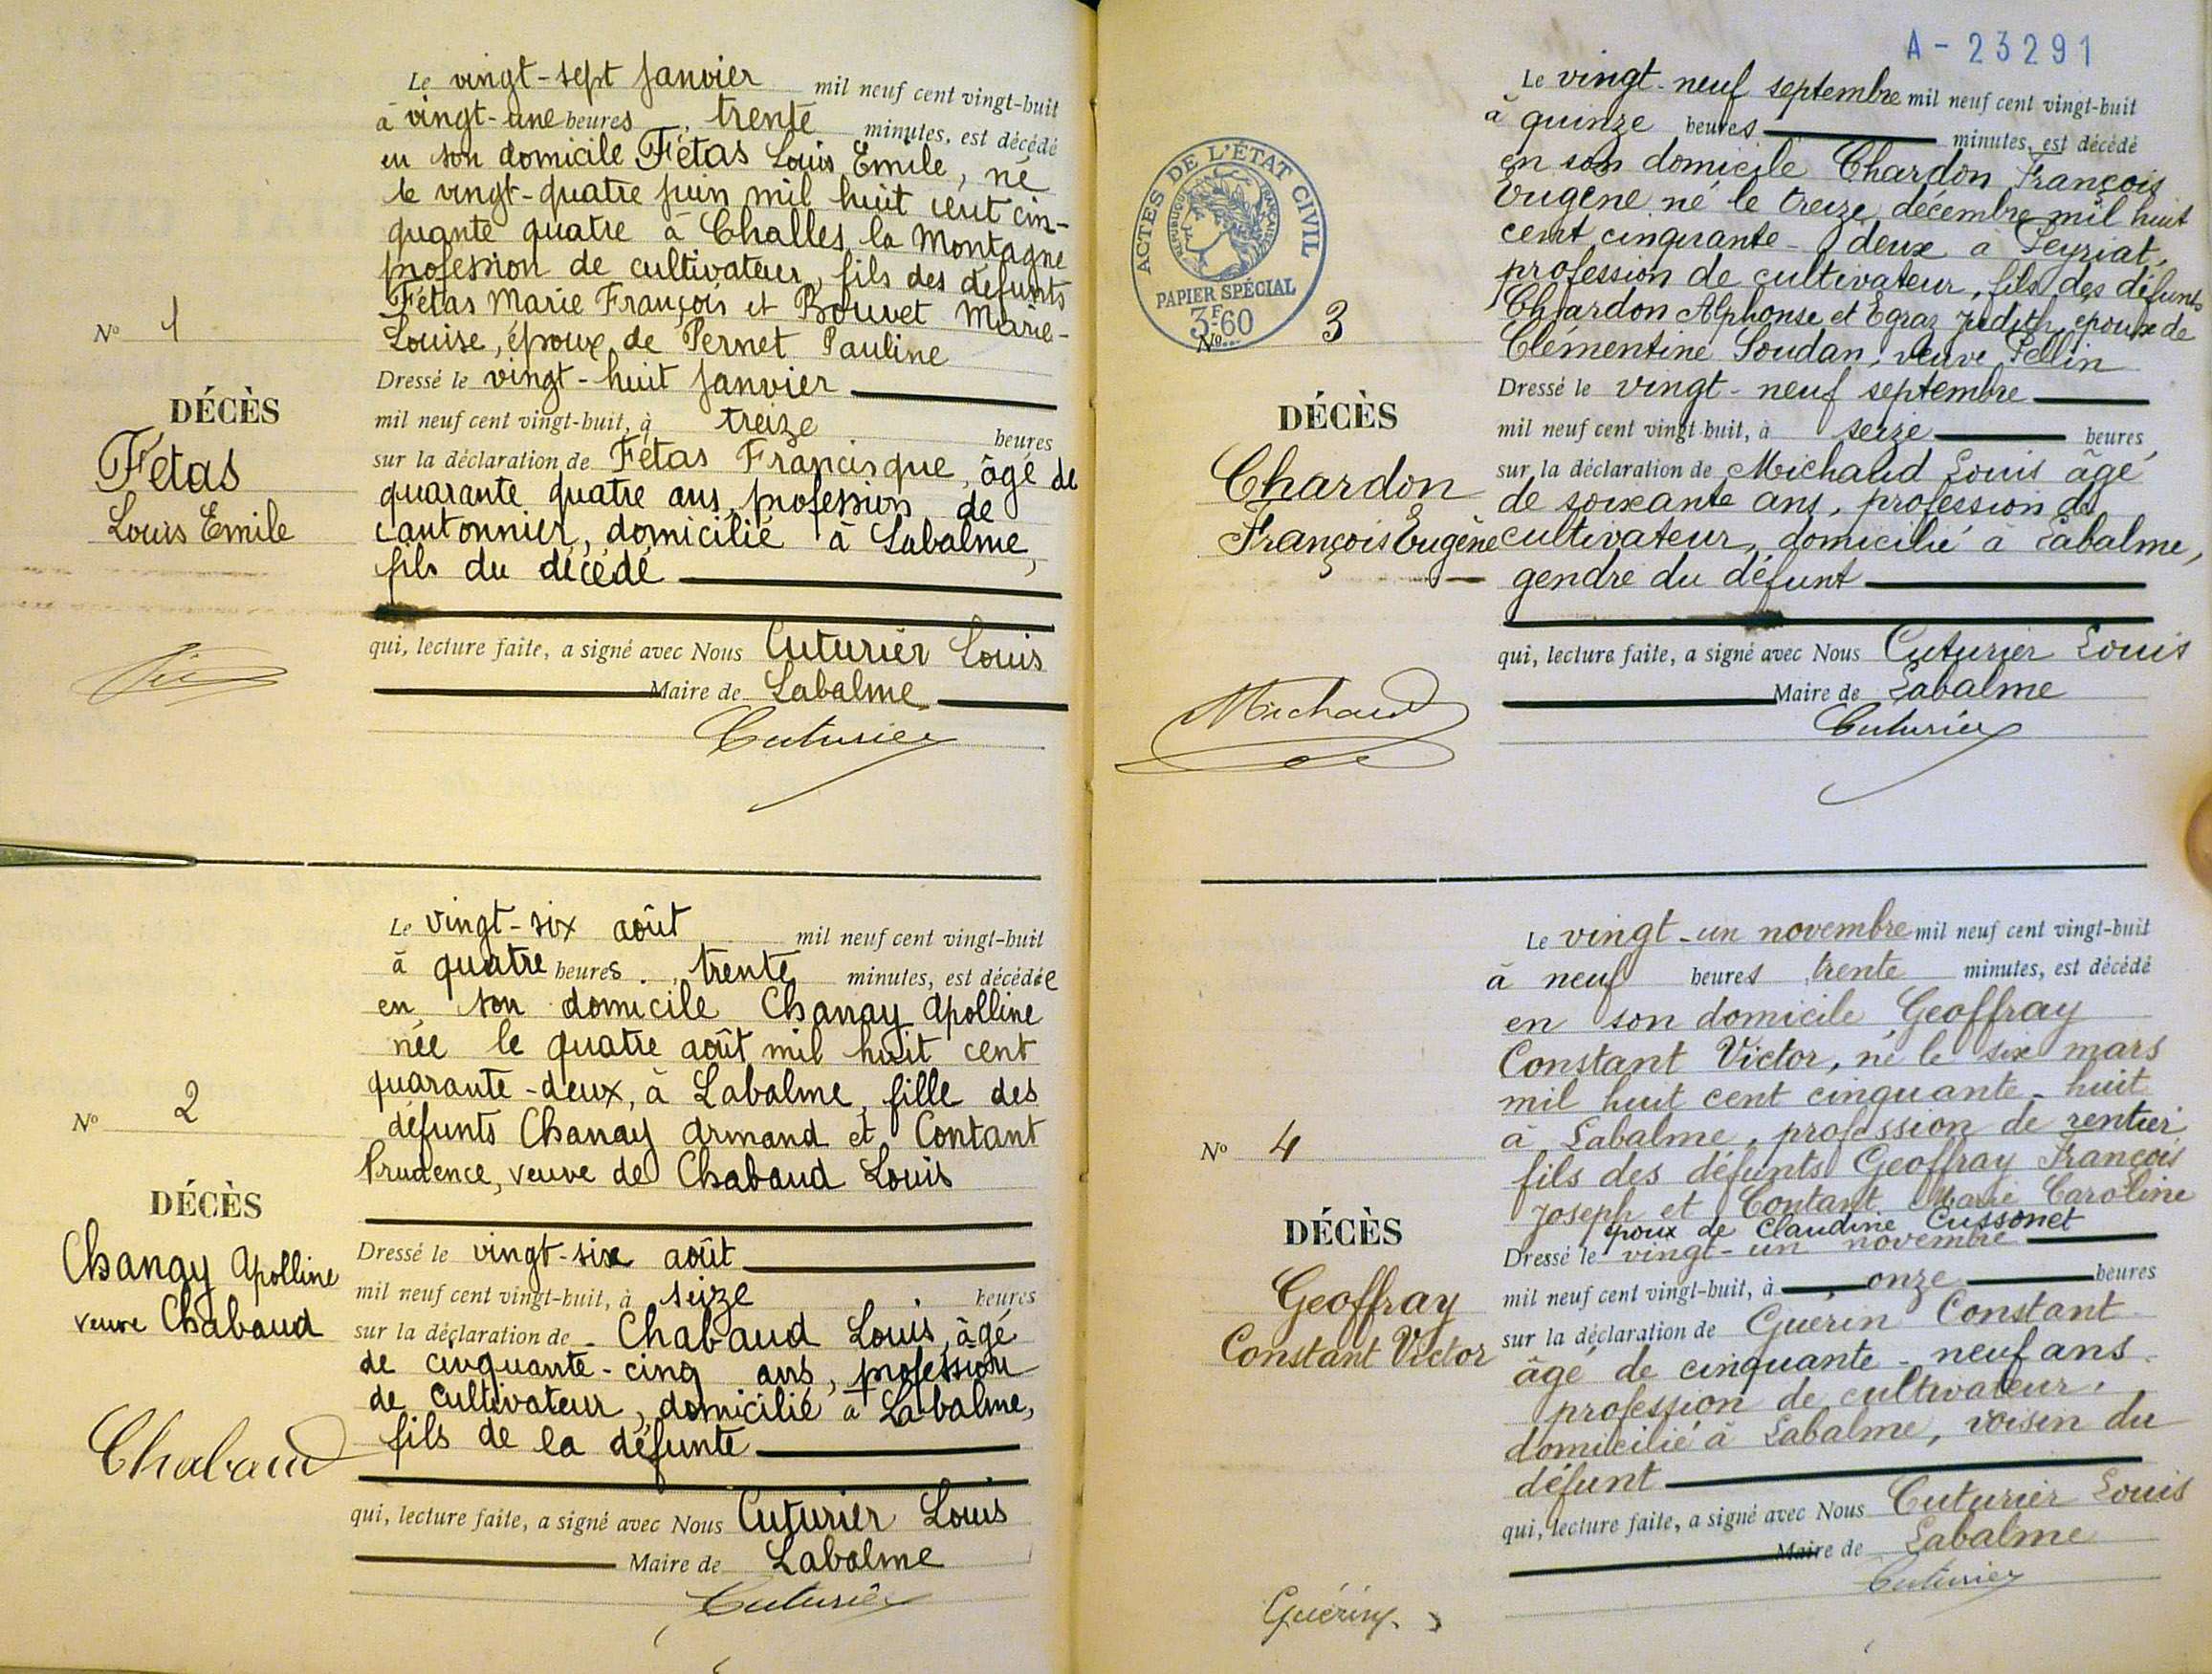 Le vingt-sept Janvier mil neuf cent vingt-huit
à vingt-une heures, trente minutes, est décédé
en son domicile Fétas Louis Emile, né
le vingt-quatre juin mil huit cent cin-
quante quatre à Challes la Montagne
profession de cultivateur, fils des défunts
Fétas Marie François et Bouvet Marie-
Louise, époux de Pernet Pauline
Dressé le vingt-huit Janvier
mil neuf cent vingt-huit, à treize heures
sur la déclaration de Fétas Francisque, âgé de
quarante quatre ans, profession de
cantonnier, domicilié à Labalme,
fils du décédé
qui, lecture faite, a signé avec Nous Cuturier Louis
Maire de Labalme
Cuturier
No 1
DÉCÈS
Fétas
Louis Emile
Le vingt-six août mil neuf cent vingt-huit
à quatre heures, trente minutes, est décédée
en son domicile Chanay Apolline
née le quatre août mil huit cent
quarante-deux, à Labalme, fille des
défunts Chanay Armand et Contant
Prudence, veuve de Chabaud Louis
Dressé le vingt-six août
mil neuf cent vingt-huit, à seize heures
sur la déclaration de Chabaud Louis, âgé
de cinquante-cinq ans, profession
de cultivateur, domicilié à Labalme,
fils de la défunte
qui, lecture faite, a signé avec Nous Cuturier Louis
Maire de Labalme
Cuturier
No 2
DÉCÈS
Chanay Apolline
veuve Chabaud
Chabaud
A-23291
Le vingt-neuf septembre mil neuf cent vingt-huit
à quinze heures minutes, est décédé
en son domicile Chardon François
Eugène né le treize décembre mil huit
cent cinquante-deux à Peyriat,
profession de cultivateur, fils des défunts
Chardon Alphonse et Egraz Judith, époux de
Clémentine Soudan, veuve Pellin
Dressé le vingt-neuf septembre
mil neuf cent vingt-huit, à seize heures
sur la déclaration de Michaud Louis âgé
de soixante ans, profession de
cultivateur, domicilié à Labalme,
gendre du défunt
qui, lecture faite, a signé avec Nous Cuturier Louis
Maire de Labalme
Cuturier
ACTES DE L'ÉTAT CIVIL
RÉPUBLIQUE FRANÇAISE
PAPIER SPÉCIAL
3F60
No 3
DÉCÈS
Chardon
François Eugène
Michaud
Le vingt-un novembre mil neuf cent vingt-huit
à neuf heures trente minutes, est décédé
en son domicile Geoffray
Constant Victor, né le six mars
mil huit cent cinquante-huit
à Labalme, profession de rentier
fils des défunts Geoffray François
Joseph et Contant Marie Caroline
époux de Claudine Cussonet
Dressé le vingt-un novembre
mil neuf cent vingt-huit, à onze heures
sur la déclaration de Guérin Constant
âgé de cinquante-neuf ans
profession de cultivateur,
domicilié à Labalme, voisin du
défunt
qui, lecture faite, a signé avec Nous Cuturier Louis
Maire de Labalme
Cuturier
No 4
DÉCÈS
Geoffray
Constant Victor
Guérin